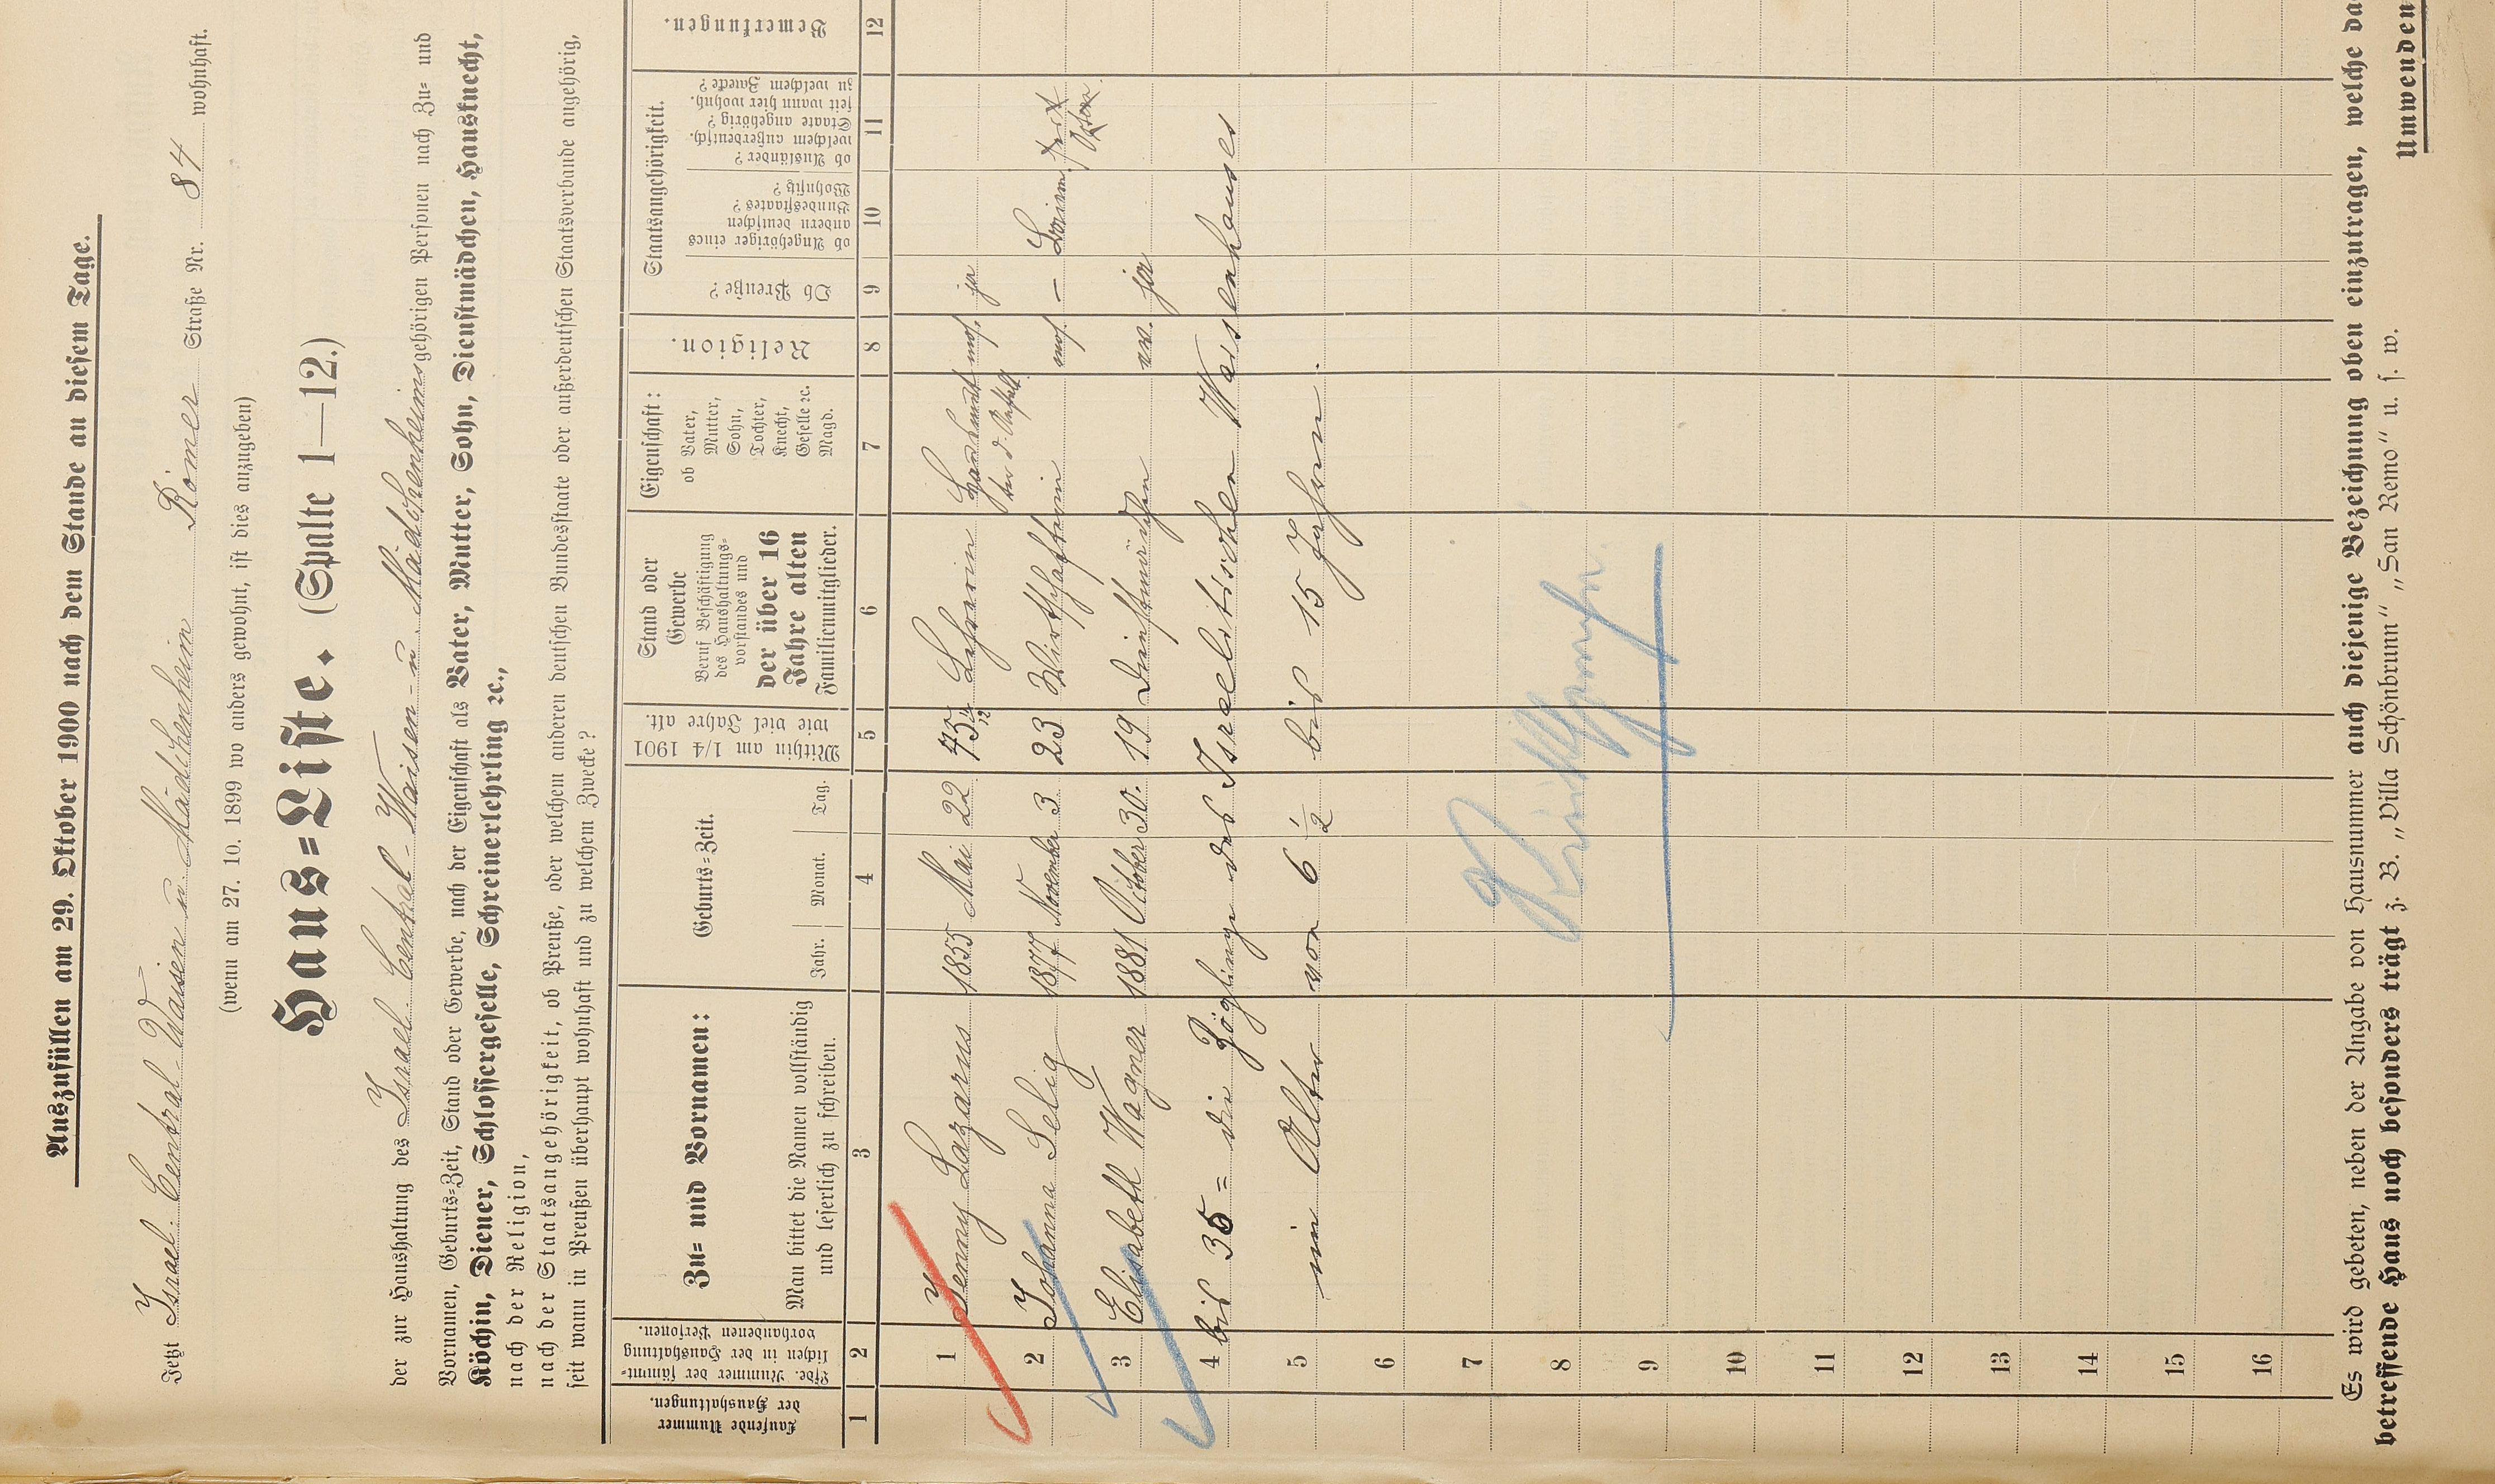 Auszufüllen am 29. Oktober 1900 nach dem Stande an diesem Tage.
Jetzt Israel. Central-Waisen u. Mädchenheim Römer Straße Nr. 84 wohnhaft.
(wenn am 27. 10. 1899 wo anders gewohnt, ist dies anzugeben)
Haus=Liste. (Spalte 1—12.)
der zur Haushaltung des Israel. Central-Waisen- u. Mädchenheims gehörigen Personen nach Zu= und
Vornamen, Geburts=Zeit, Stand oder Gewerbe, nach der Eigenschaft als Vater, Mutter, Sohn, Dienstmädchen, Hausknecht,
Köchin, Diener, Schlossergeselle, Schreinerlehrling ꝛc.,
nach der Religion,
nach der Staatsangehörigkeit, ob Preuße, oder welchem anderen deutschen Bundesstaate oder außerdeutschen Staatsverbande angehörig,
seit wann in Preußen überhaupt wohnhaft und zu welchem Zwecke?
Laufende Nummer
der
Haushaltungen.
1
Lfde. Nummer der sämmt=
lichen in der Haushaltung
vorhandenen Personen.
2
Zu= und Vornamen:
Man bittet die Namen vollständig
und leserlich zu schreiben.
3
Geburts=Zeit.
Jahr. Monat. Tag.
4
Mithin am 1/4 1901
wie viel Jahre alt.
5
Stand oder
Gewerbe
Beruf Beschäftigung
des Haushaltungs=
vorstandes und
der über 16
Jahre alten
Familienmitglieder.
6
Eigenschaft:
ob Vater,
Mutter,
Sohn,
Tochter,
Knecht,
Geselle ꝛc.
Magd.
7
Religion.
8
Staatsangehörigkeit.
Ob Preuße?
9
ob Angehöriger eines
andern deutschen
Bundesstaates?
Wohnsitz?
10
ob Ausländer?
welchem außerdeutsch.
Staate angehörig?
seit wann hier wohnh.
zu welchem Zwecke?
11
Bemerkungen.
12
1 Jenny Lazarus 1855 Mai 22 45 Lehrerin mos. ja
2 Johanna Selig 1877 November 3 23 Wirthschafterin mos. —
3 Elisabeth Wagner 1881 October 30. 19 Dienstmädchen ev. ja
4 bis 35 = die Zöglinge des Israelitischen Waisenhauses
5 im Alter von 6 ½ bis 15 Jahren.
6
7
8
9
10
11
12
13
14
15
16
Es wird gebeten, neben der Angabe von Hausnummer auch diejenige Bezeichnung oben einzutragen, welche da
betreffende Haus noch besonders trägt z. B. „Villa Schönbrunn“ „San Remo“ u. s. w.
Umwenden